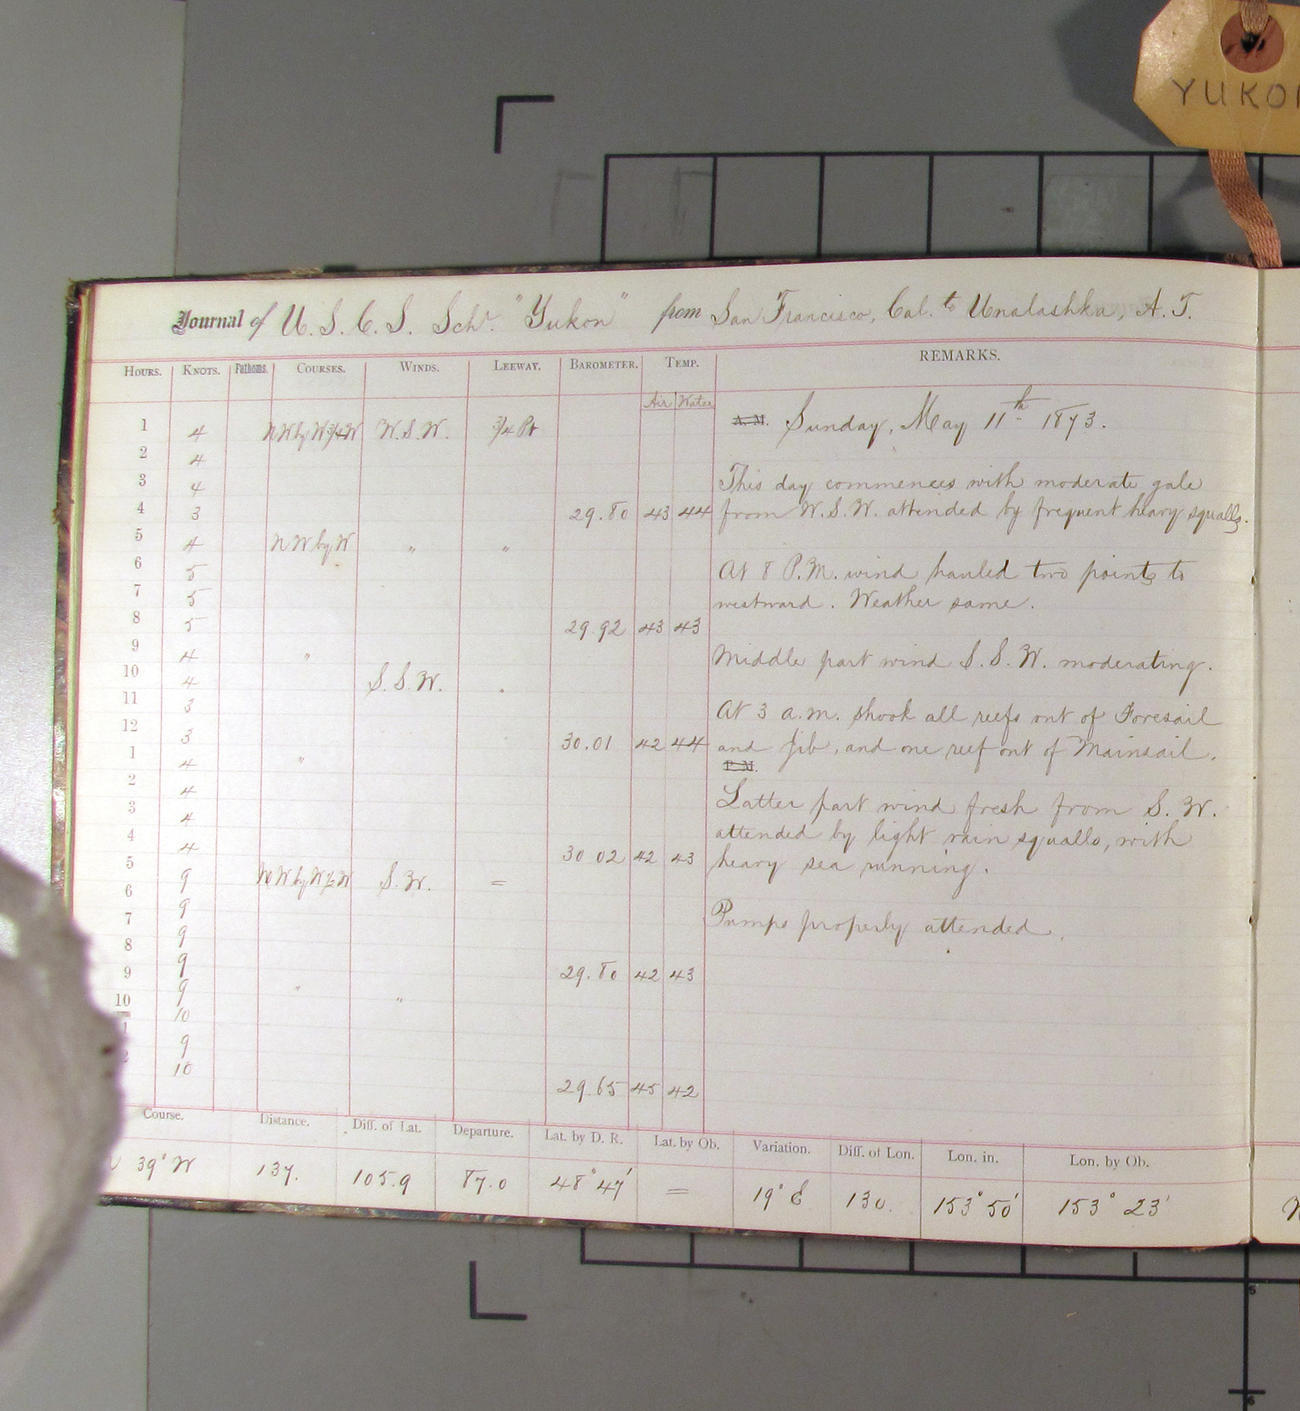 YUKON
Journal of U. S. C. S. Schr. "Yukon" from San Francisco, Cal. to Unalashka, A. T.
Hours. Knots. Fathoms. Courses. Winds. Leeway. Barometer. Temp. REMARKS.
Air Water
A.M. Sunday, May 11th 1873.
1 4 NW by W 3/4 W W.S.W. 3/4 Pt
2 4
3 4 This day commences with moderate gale
4 3 29.80 43 44 from W.S.W. attended by frequent heavy squalls.
5 4 NW by W " "
6 5 At 8 P.M. wind hauled two points to
7 5 westward. Weather same.
8 5 29.92 43 43
9 4 " Middle part wind S.S.W. moderating.
10 4 S.S.W.
11 3 At 3 a.m. shook all reefs out of Foresail
12 3 30.01 42 44 and Jib, and one reef out of Mainsail.
P.M.
1 4 "
2 4 Latter part wind fresh from S.W.
3 4 attended by light rain squalls, with
4 4 30 02 42 43 heavy sea running.
5 9 NW by W 1/2 W S.W. =
6 9 Pumps properly attended.
7 9
8 9 29.80 42 43
9 9 " "
10 10
1 9
2 10 29.65 45 42
Course. Distance. Diff. of Lat. Departure. Lat. by D. R. Lat. by Ob. Variation. Diff. of Lon. Lon. in. Lon. by Ob.
39° W 137. 105.9 87.0 48° 47' = 19° E 130. 153° 50' 153° 23'
5
6